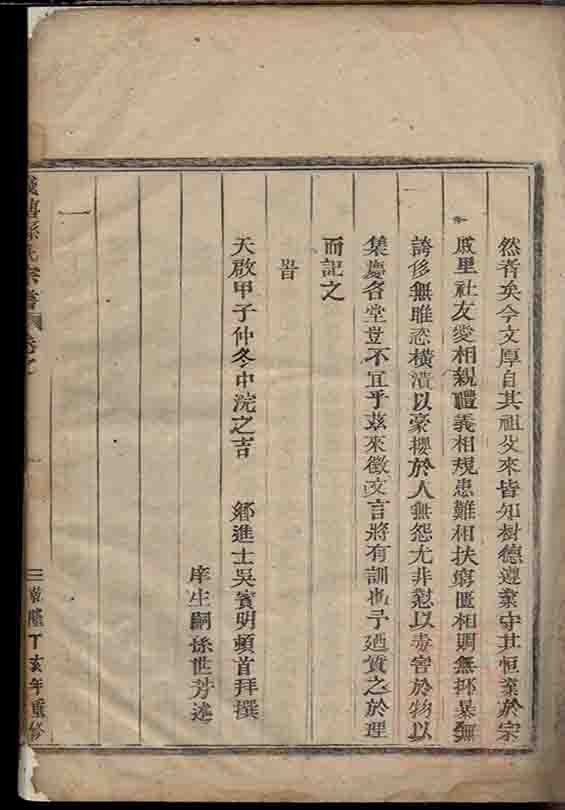 然者矣今文厚自其祖父來皆知樹德遵業守其恒業於宗
戚里社友愛相親禮義相規患難相扶窮匱相賙無抔暴無
誇侈無雎恣橫潰以豪攖於人無怨尤非懟以毒害於物以
集慶名堂豈不宜乎茲來徵文言將有訓也予廼質之於理
而記之
旹
天啟甲子仲冬中浣之吉 鄉進士吳賓明頓首拜撰
庠生嗣孫世芳述
孫氏宗譜 卷之
一
乾隆丁亥年重修